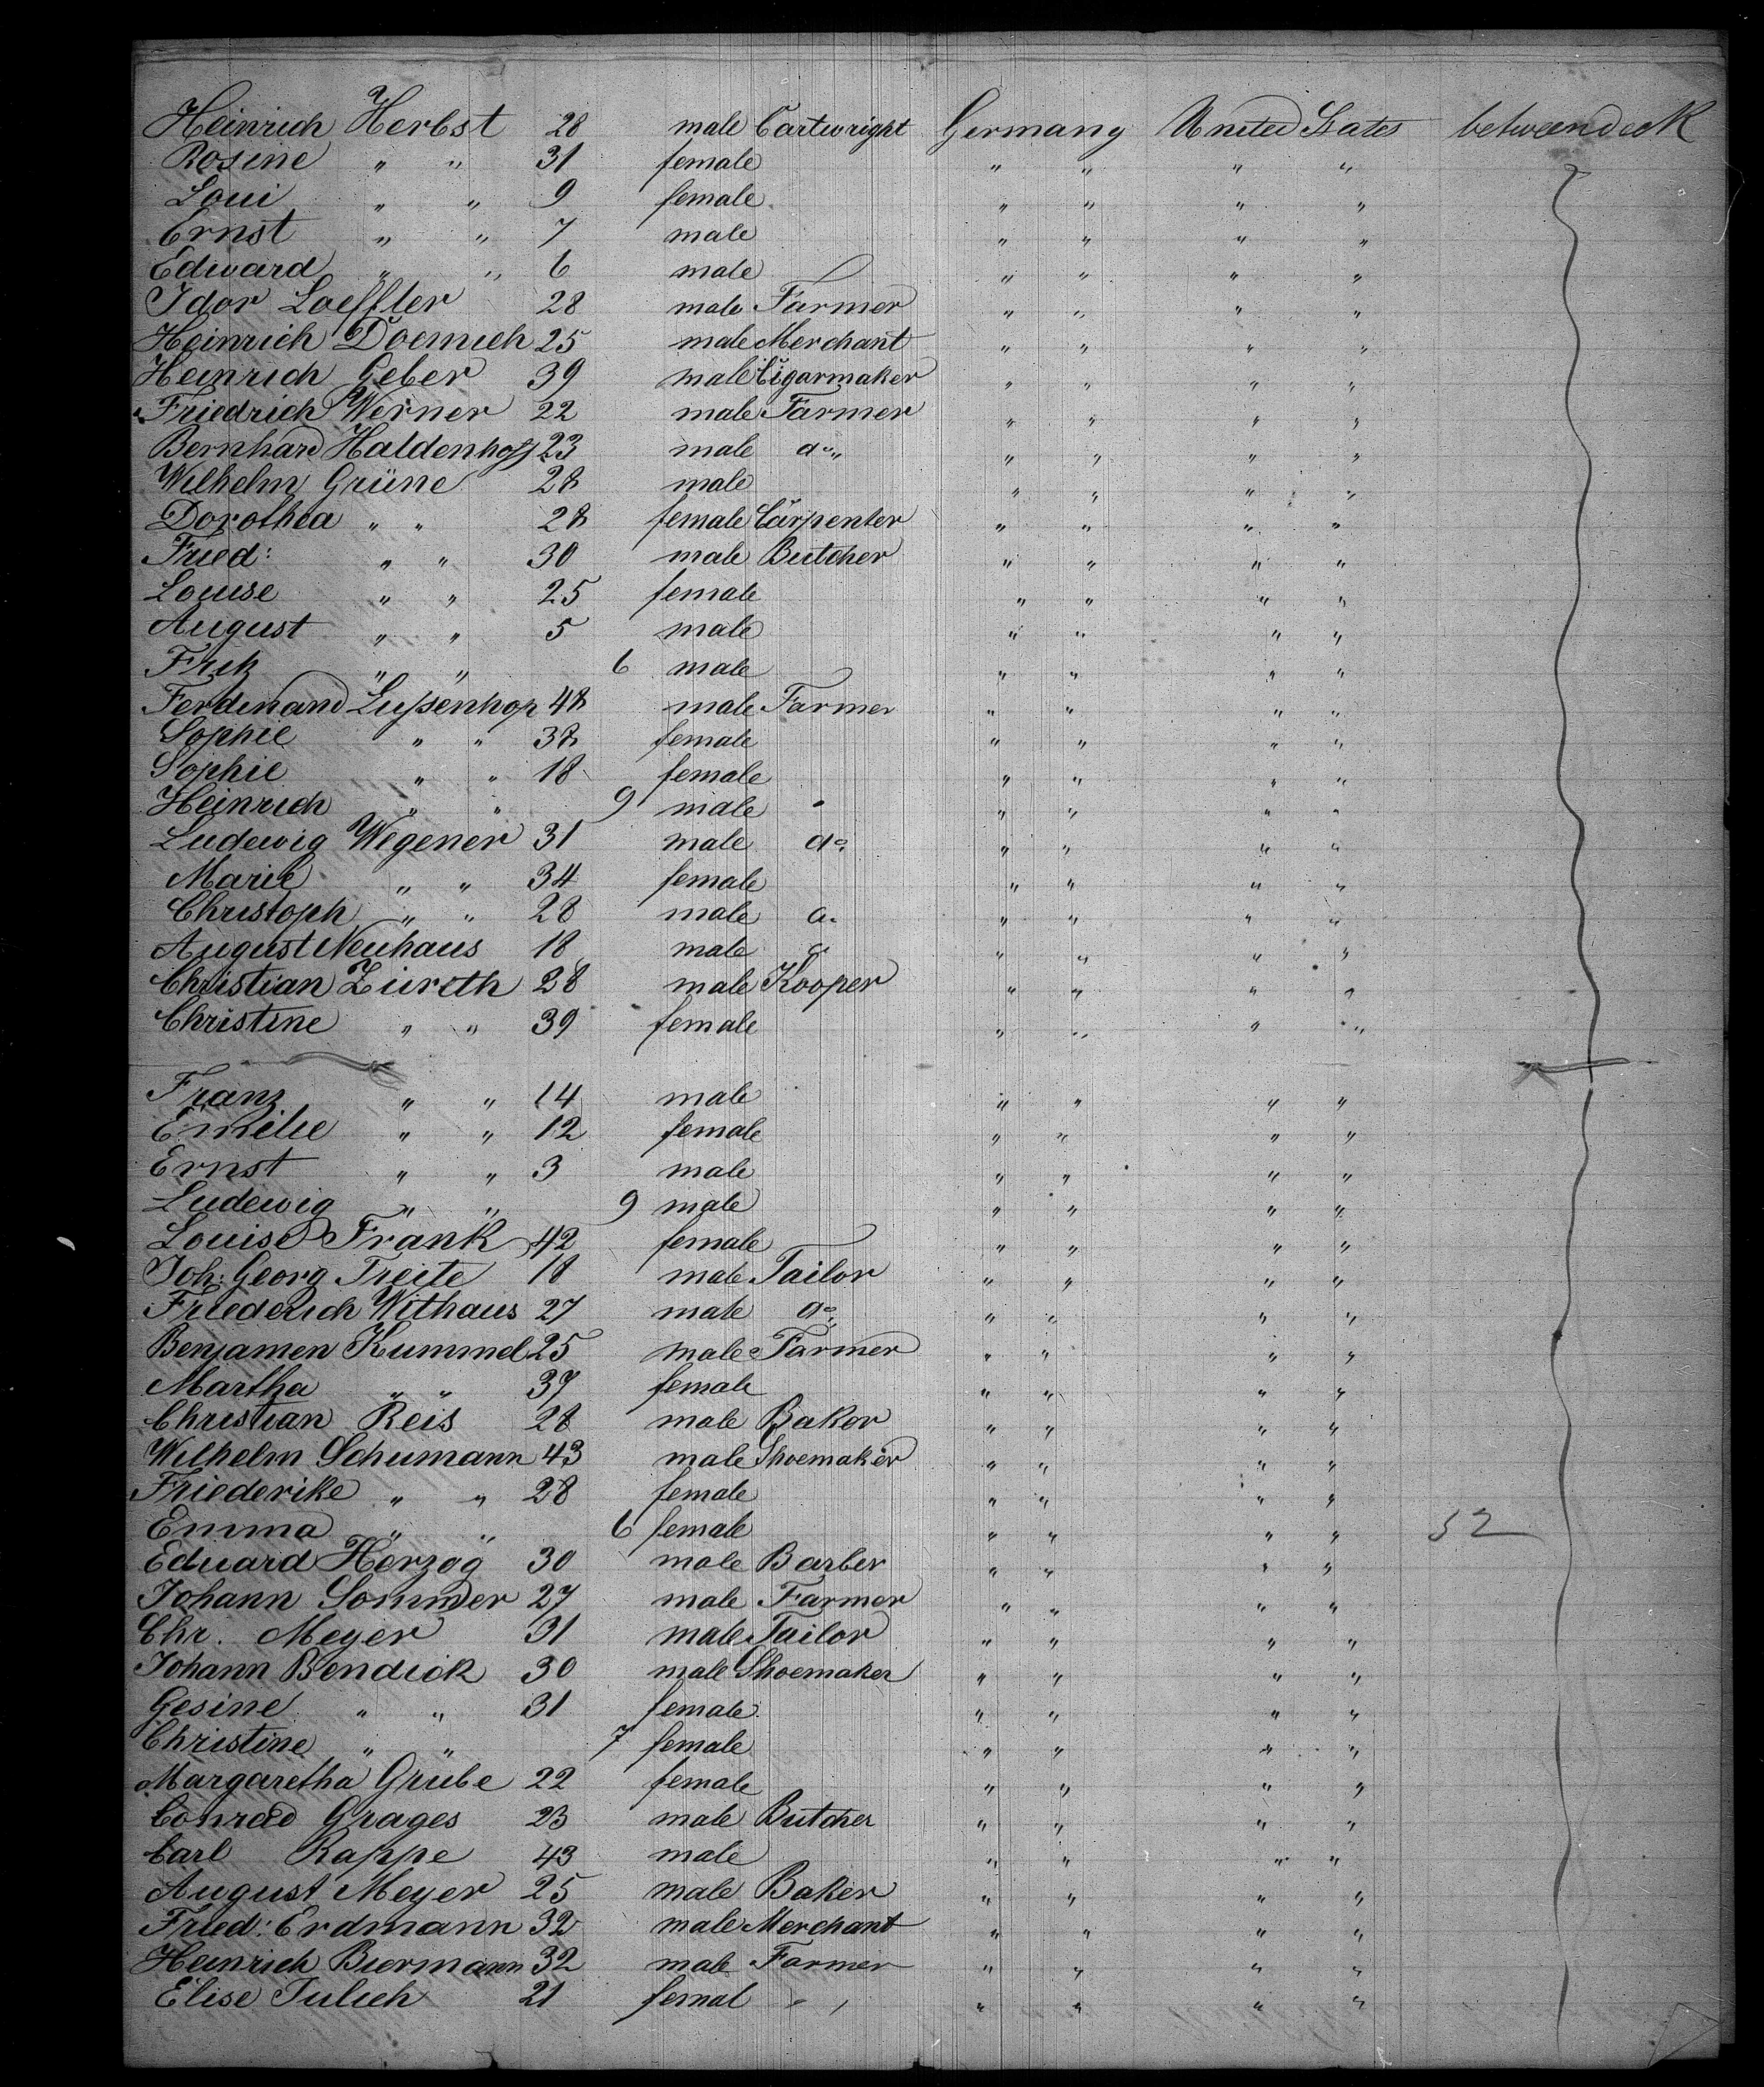 Heinrich Herbst 28 male Cartwright Germany United States betweendeck
Rosine " " 31 female " " " "
Loui " " 9 female " " " "
Ernst " " 7 male " " " "
Edward " " 6 male " " " "
Idor Loeffler 28 male Farmer " " " "
Heinrich Doemich 25 male Merchant " " " "
Heinrich Geber 39 male Cigarmaker " " " "
Friedrich Werner 22 male Farmer " " " "
Bernhard Haldenhoff 23 male do " " " "
Wilhelm Grüne 28 male " " " "
Dorothea " " 28 female Carpenter " " " "
Fried: " " 30 male Butcher " " " "
Louise " " 25 female " " " "
August " " 5 male " " " "
Fritz " " 6 male " " " "
Ferdinand Lussenhop 48 male Farmer " " " "
Sophie " " 38 female " " " "
Sophie " " 18 female " " " "
Heinrich " " 9 male " " " "
Ludewig Wegener 31 male do " " " "
Marie " " 34 female " " " "
Christoph " " 28 male do " " " "
August Neuhaus 18 male do " " " "
Christian Zureth 28 male Kooper " " " "
Christine " " 39 female " " " "
Franz " " 14 male " " " "
Emilie " " 12 female " " " "
Ernst " " 3 male " " " "
Ludewig " " 9 male " " " "
Louise Frank 42 female " " " "
Joh: Georg Treite 18 male Tailor " " " "
Friederich Withaus 27 male do " " " "
Benjamen Kummel 25 male Farmer " " " "
Martha " " 37 female " " " "
Christian Reis 28 male Baker " " " "
Wilhelm Schumann 43 male Shoemaker " " " "
Friederike " " 28 female " " " "
Emma " " 6 female " " " " 52
Eduard Herzog 30 male Barber " " " "
Johann Sommer 27 male Farmer " " " "
Chr. Meyer 31 male Tailor " " " "
Johann Bendick 30 male Shoemaker " " " "
Gesine " " 31 female " " " "
Christine " " 7 female " " " "
Margaretha Grube 22 female " " " "
Conrad Grages 23 male Butcher " " " "
Carl Rappe 43 male " " " "
August Meyer 25 male Baker " " " "
Fried: Erdmann 32 male Merchant " " " "
Heinrich Biermann 32 male Farmer " " " "
Elise Julich 21 femal " " " " " "